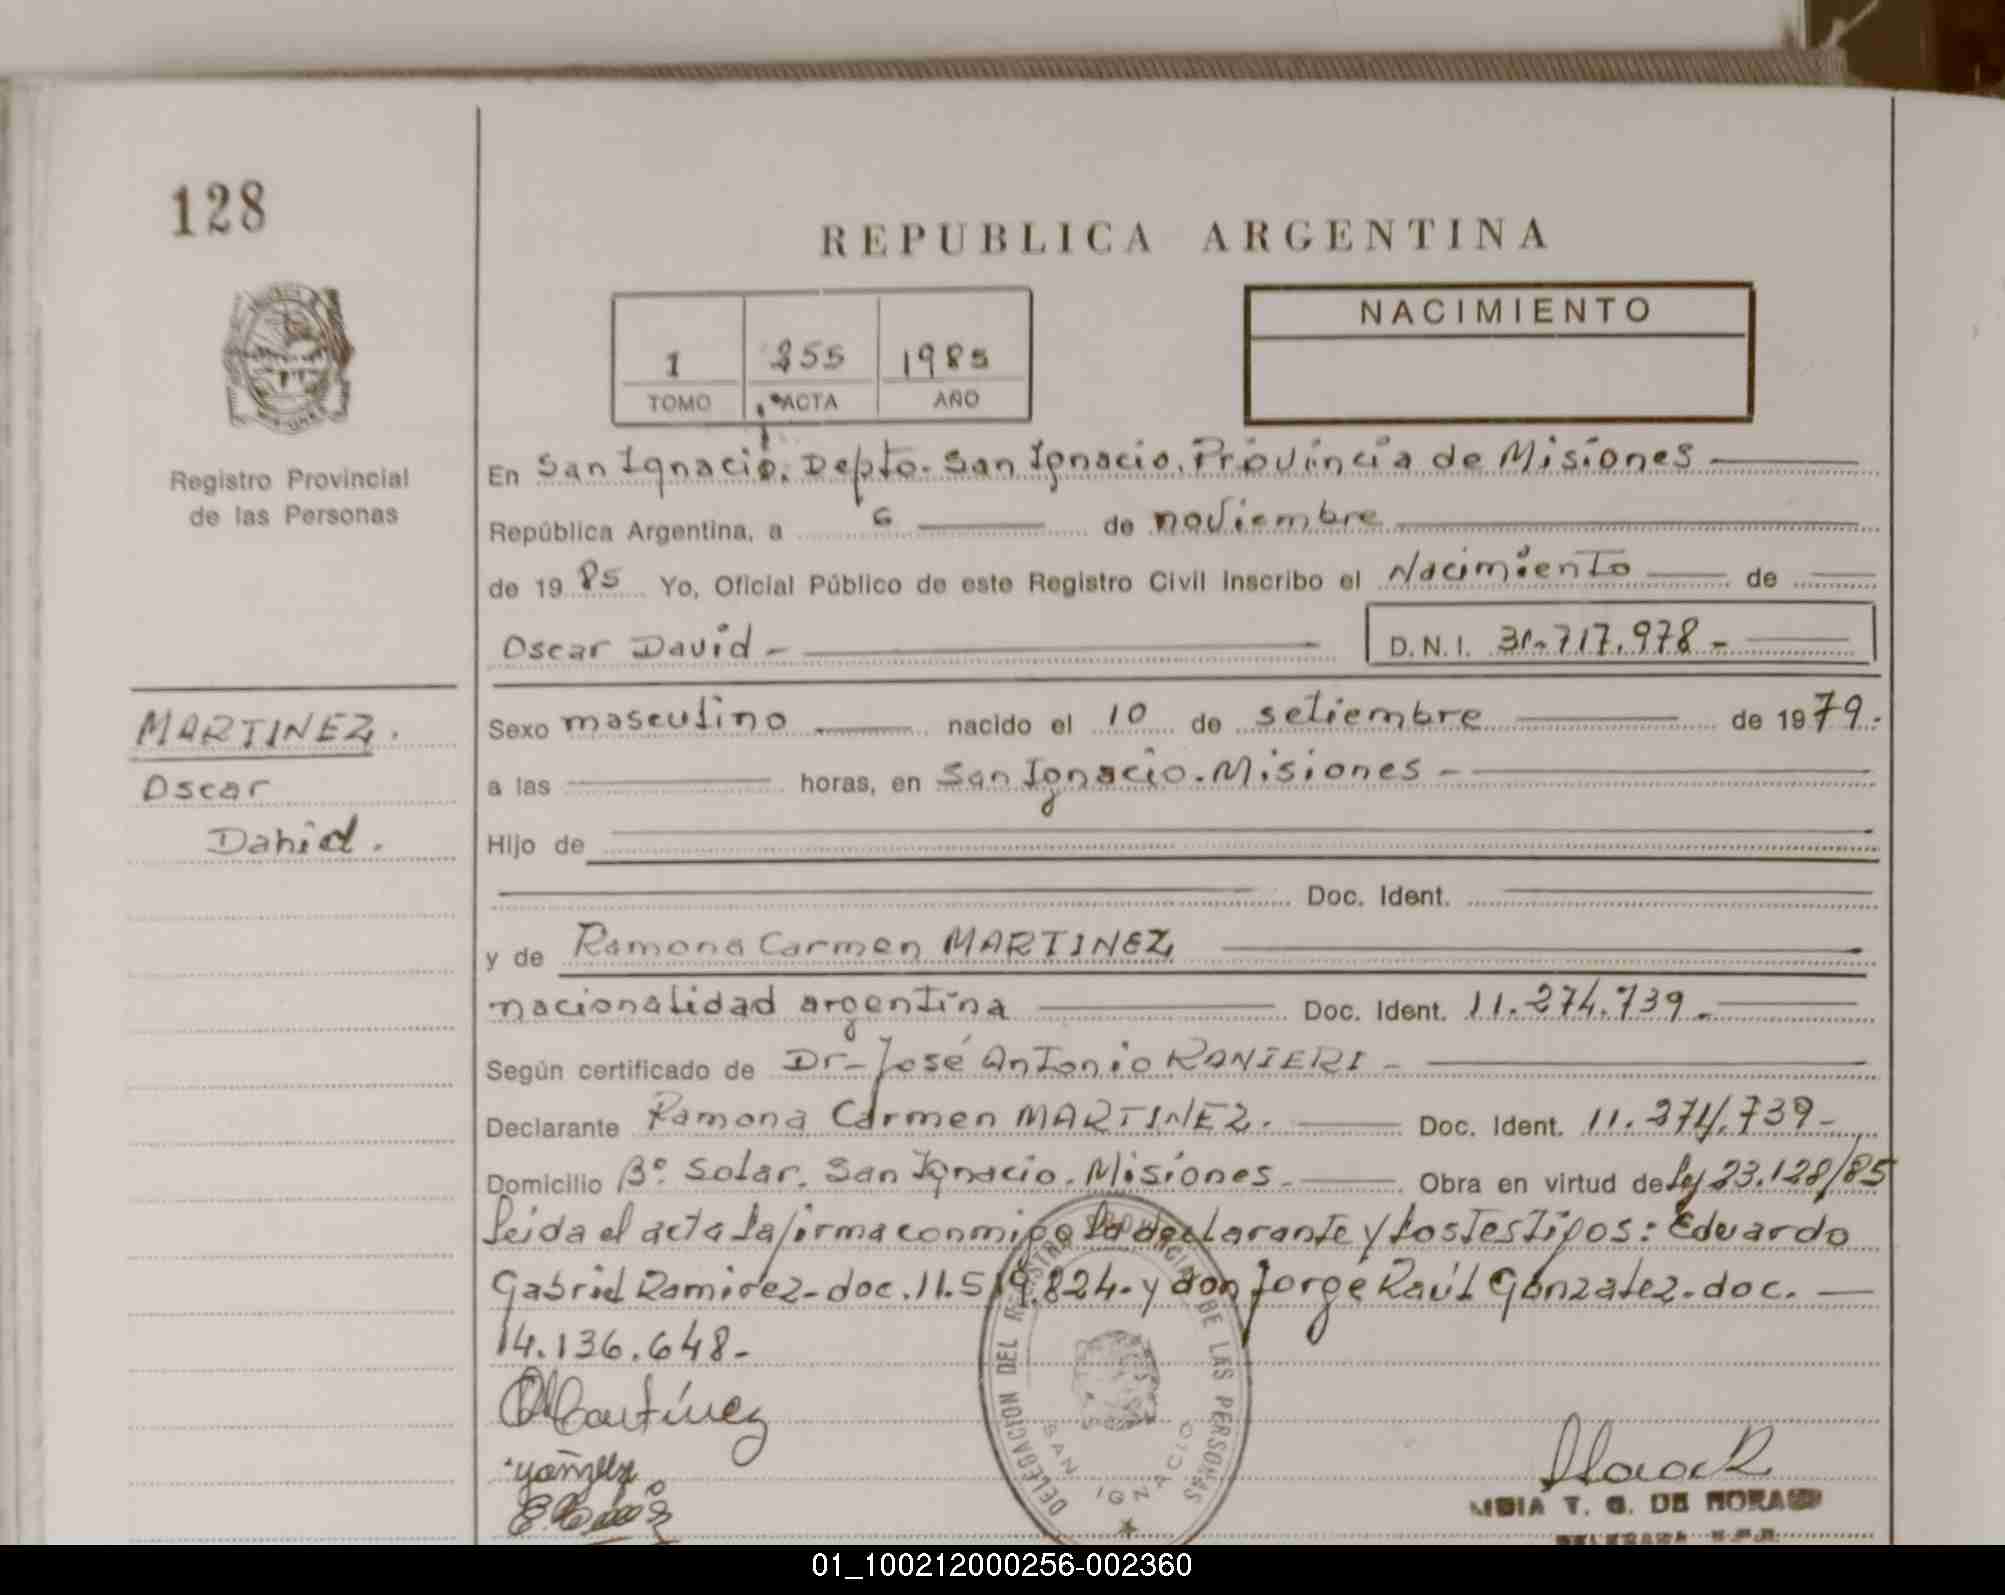 128
REPUBLICA ARGENTINA
NACIMIENTO
1 255 1985
TOMO ACTA AÑO
Registro Provincial
de las Personas
En San Ignacio, Depto. San Ignacio, Provincia de Misiones
República Argentina, a 6 de noviembre
de 1985 Yo, Oficial Público de este Registro Civil inscribo el Nacimiento de
Oscar David - D.N.I. 31.717.978 -
MARTINEZ.
Oscar
David.
Sexo masculino nacido el 10 de setiembre de 1979.
a las horas, en San Ignacio. Misiones -
Hijo de
Doc. Ident.
y de Ramona Carmen MARTINEZ
nacionalidad argentina Doc. Ident. 11.274.739 -
Según certificado de Dr- José Antonio RANIERI -
Declarante Ramona Carmen MARTINEZ. Doc. Ident. 11.274.739 -
Domicilio B° Solar. San Ignacio. Misiones. Obra en virtud de ley 23.128/85
Leida el acta la firma conmigo la declarante y los testigos: Eduardo
Gabriel Ramirez - doc. 11.519.824 - y don Jorge Raúl Gonzalez. doc.
14.136.648 -
DELEGACION DEL REGISTRO PROVINCIAL DE LAS PERSONAS
SAN IGNACIO
T. G. DE MORA
01_100212000256-002360